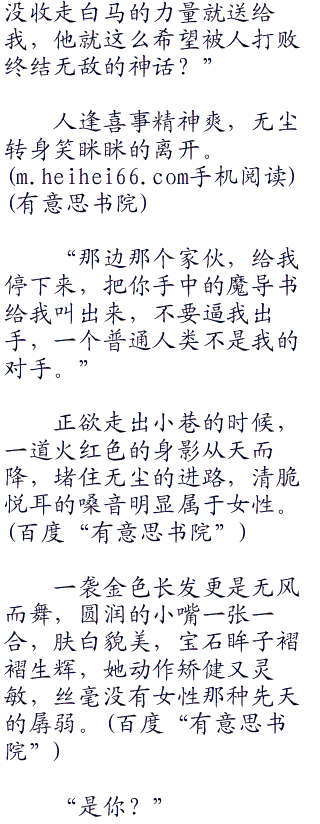 没收走白马的力量就送给
我，他就这么希望被人打败
终结无敌的神话？”
人逢喜事精神爽，无尘
转身笑眯眯的离开。
(m.heihei66.com手机阅读)
(有意思书院)
“那边那个家伙，给我
停下来，把你手中的魔导书
给我叫出来，不要逼我出
手，一个普通人类不是我的
对手。”
正欲走出小巷的时候，
一道火红色的身影从天而
降，堵住无尘的进路，清脆
悦耳的嗓音明显属于女性。
(百度“有意思书院”)
一袭金色长发更是无风
而舞，圆润的小嘴一张一
合，肤白貌美，宝石眸子褶
褶生辉，她动作矫健又灵
敏，丝毫没有女性那种先天
的孱弱。(百度“有意思书
院”)
“是你？”